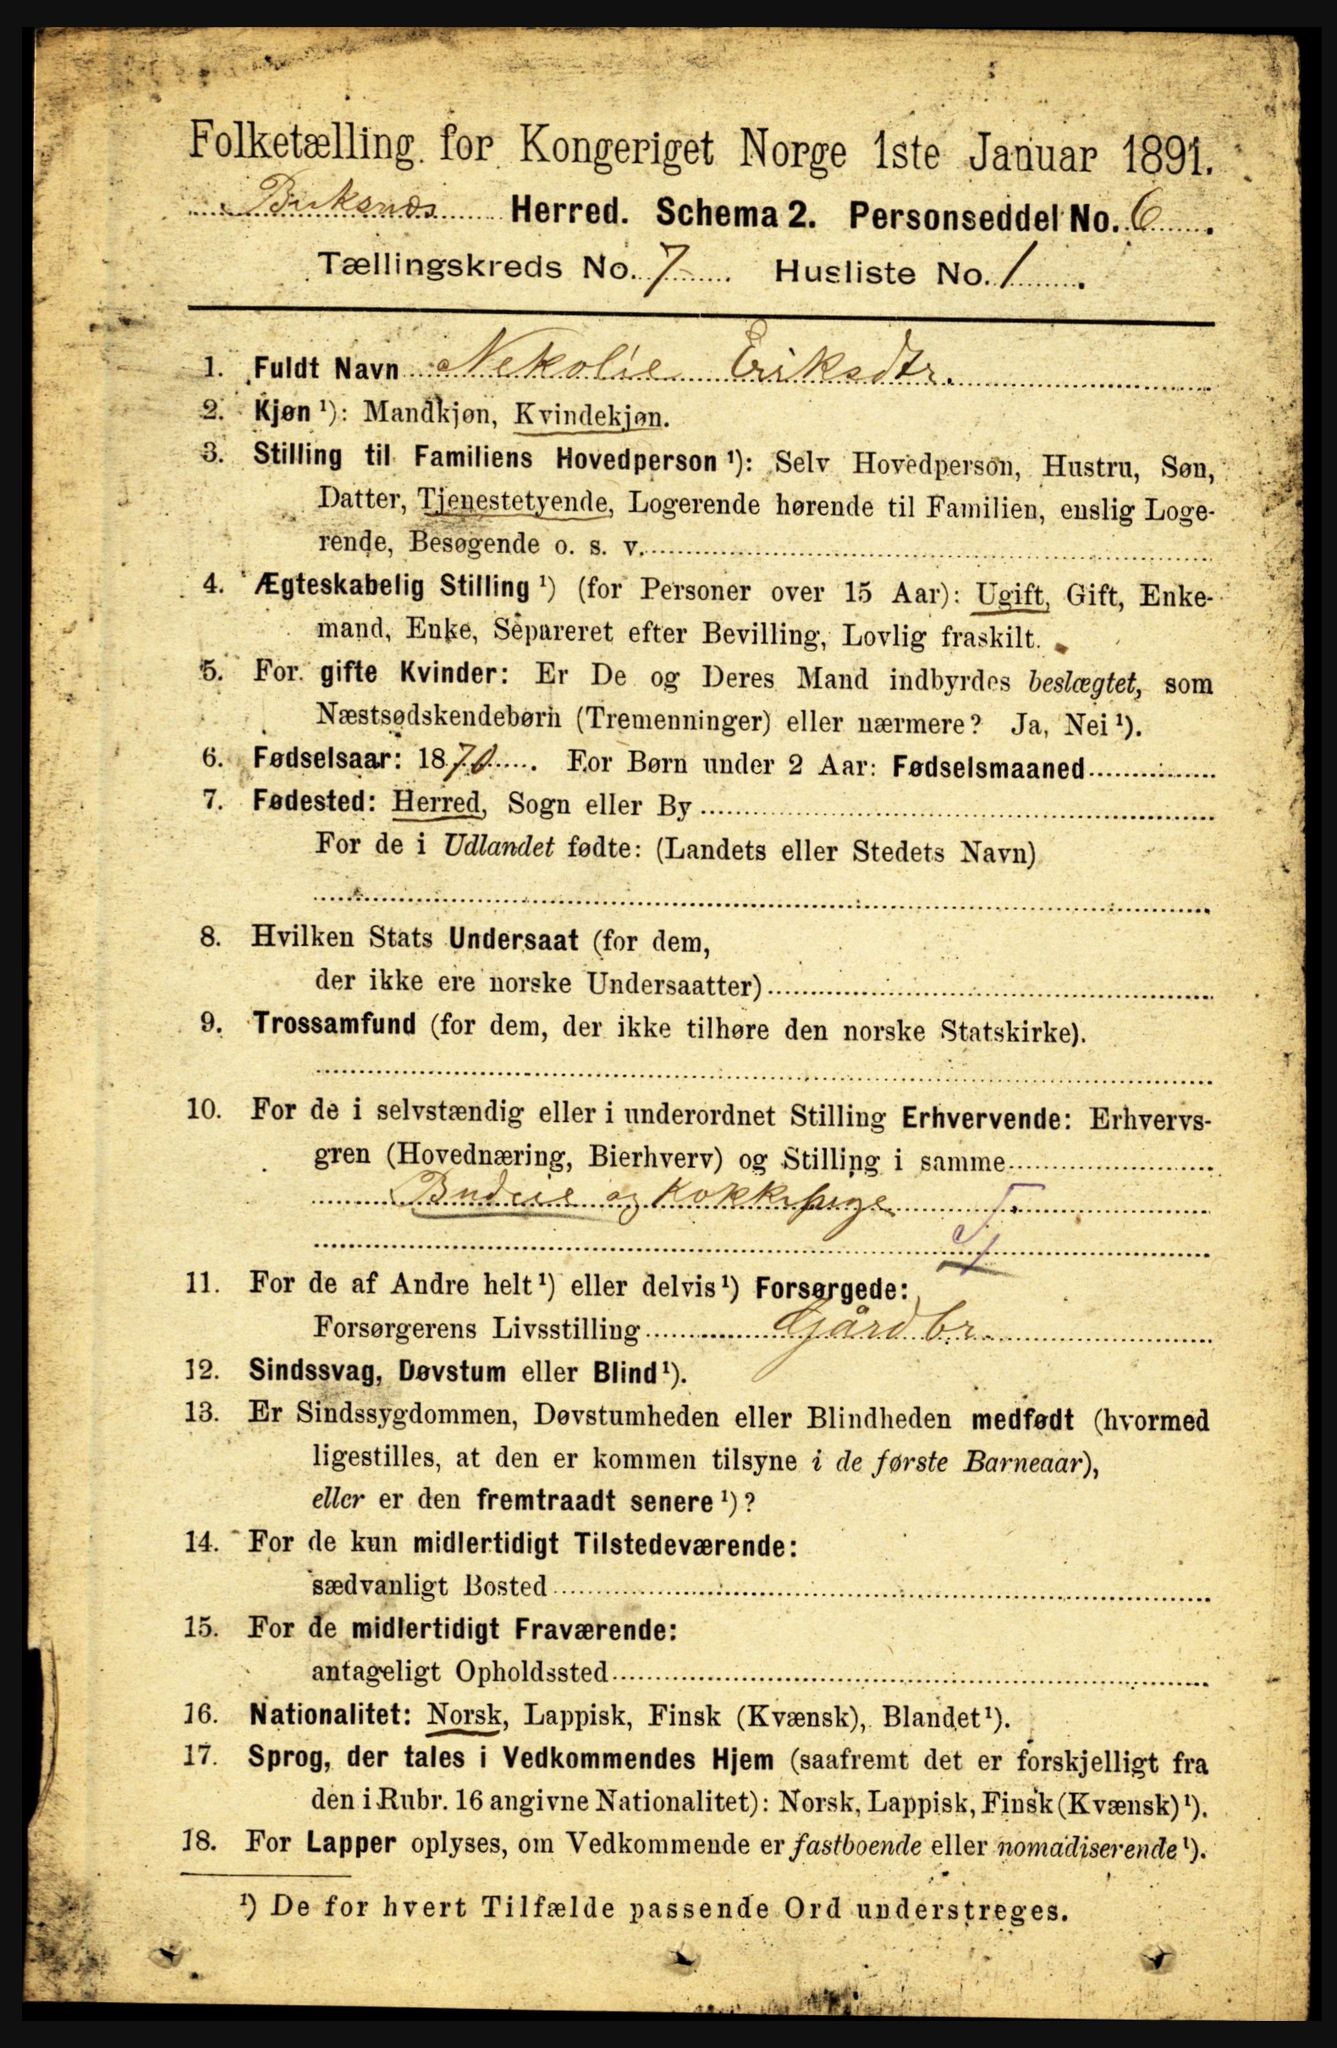 Folketælling for Kongeriget Norge 1ste Januar 1891.
Buksnæs Herred. Schema 2. Personseddel No. 6.
Tællingskreds No. 7. Husliste No. 1.
1. Fuldt Navn Nekolie Eriksdtr.
2. Kjøn ¹): Mandkjøn, Kvindekjøn.
3. Stilling til Familiens Hovedperson ¹): Selv Hovedperson, Hustru, Søn,
Datter, Tjenestetyende, Logerende hørende til Familien, enslig Loge-
rende, Besøgende o. s. v.
4. Ægteskabelig Stilling ¹) (for Personer over 15 Aar): Ugift, Gift, Enke-
mand, Enke, Separeret efter Bevilling, Lovlig fraskilt.
5. For gifte Kvinder: Er De og Deres Mand indbyrdes beslægtet, som
Næstsødskendebørn (Tremenninger) eller nærmere? Ja, Nei ¹).
6. Fødselsaar: 1870. For Børn under 2 Aar: Fødselsmaaned
7. Fødested: Herred, Sogn eller By
For de i Udlandet fødte: (Landets eller Stedets Navn)
8. Hvilken Stats Undersaat (for dem,
der ikke ere norske Undersaatter)
9. Trossamfund (for dem, der ikke tilhøre den norske Statskirke).
10. For de i selvstændig eller i underordnet Stilling Erhvervende: Erhvervs-
gren (Hovednæring, Bierhverv) og Stilling i samme
Budeie og Kokkepige
11. For de af Andre helt ¹) eller delvis ¹) Forsørgede:
Forsørgerens Livsstilling Gårdbr.
12. Sindssvag, Døvstum eller Blind ¹).
13. Er Sindssygdommen, Døvstumheden eller Blindheden medfødt (hvormed
ligestilles, at den er kommen tilsyne i de første Barneaar),
eller er den fremtraadt senere ¹)?
14. For de kun midlertidigt Tilstedeværende:
sædvanligt Bosted
15. For de midlertidigt Fraværende:
antageligt Opholdssted
16. Nationalitet: Norsk, Lappisk, Finsk (Kvænsk), Blandet ¹).
17. Sprog, der tales i Vedkommendes Hjem (saafremt det er forskjelligt fra
den i Rubr. 16 angivne Nationalitet): Norsk, Lappisk, Finsk (Kvænsk) ¹).
18. For Lapper oplyses, om Vedkommende er fastboende eller nomadiserende ¹).
¹) De for hvert Tilfælde passende Ord understreges.